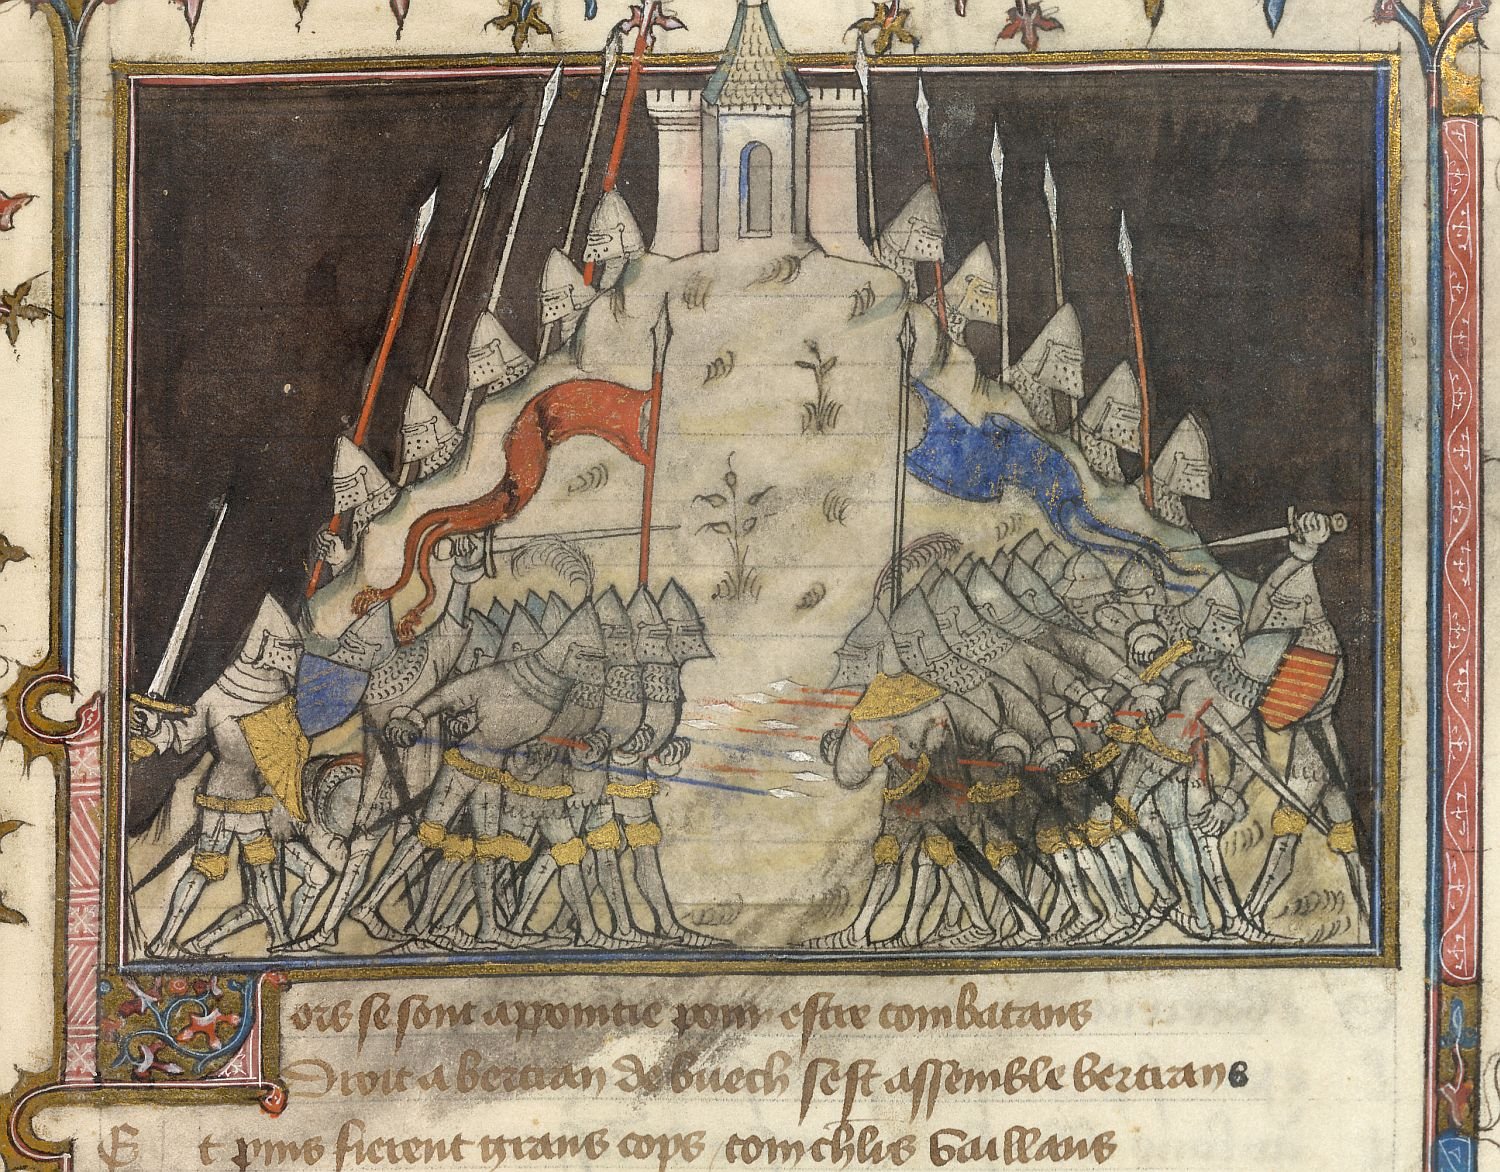 Lors se sont appointie pour estre combatans
Droit a bertran de buech sest assemble bertrans
Et puis fierent grans cops com chl'rs vaillans